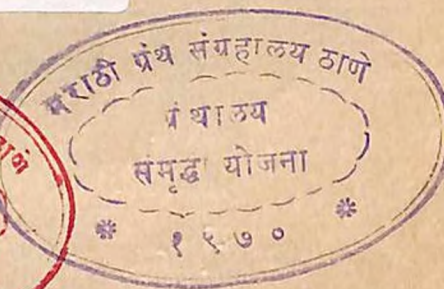 मराठी ग्रंथ संग्रहालय ठाणे
ग्रंथालय
समृद्ध योजना
* १९७० *